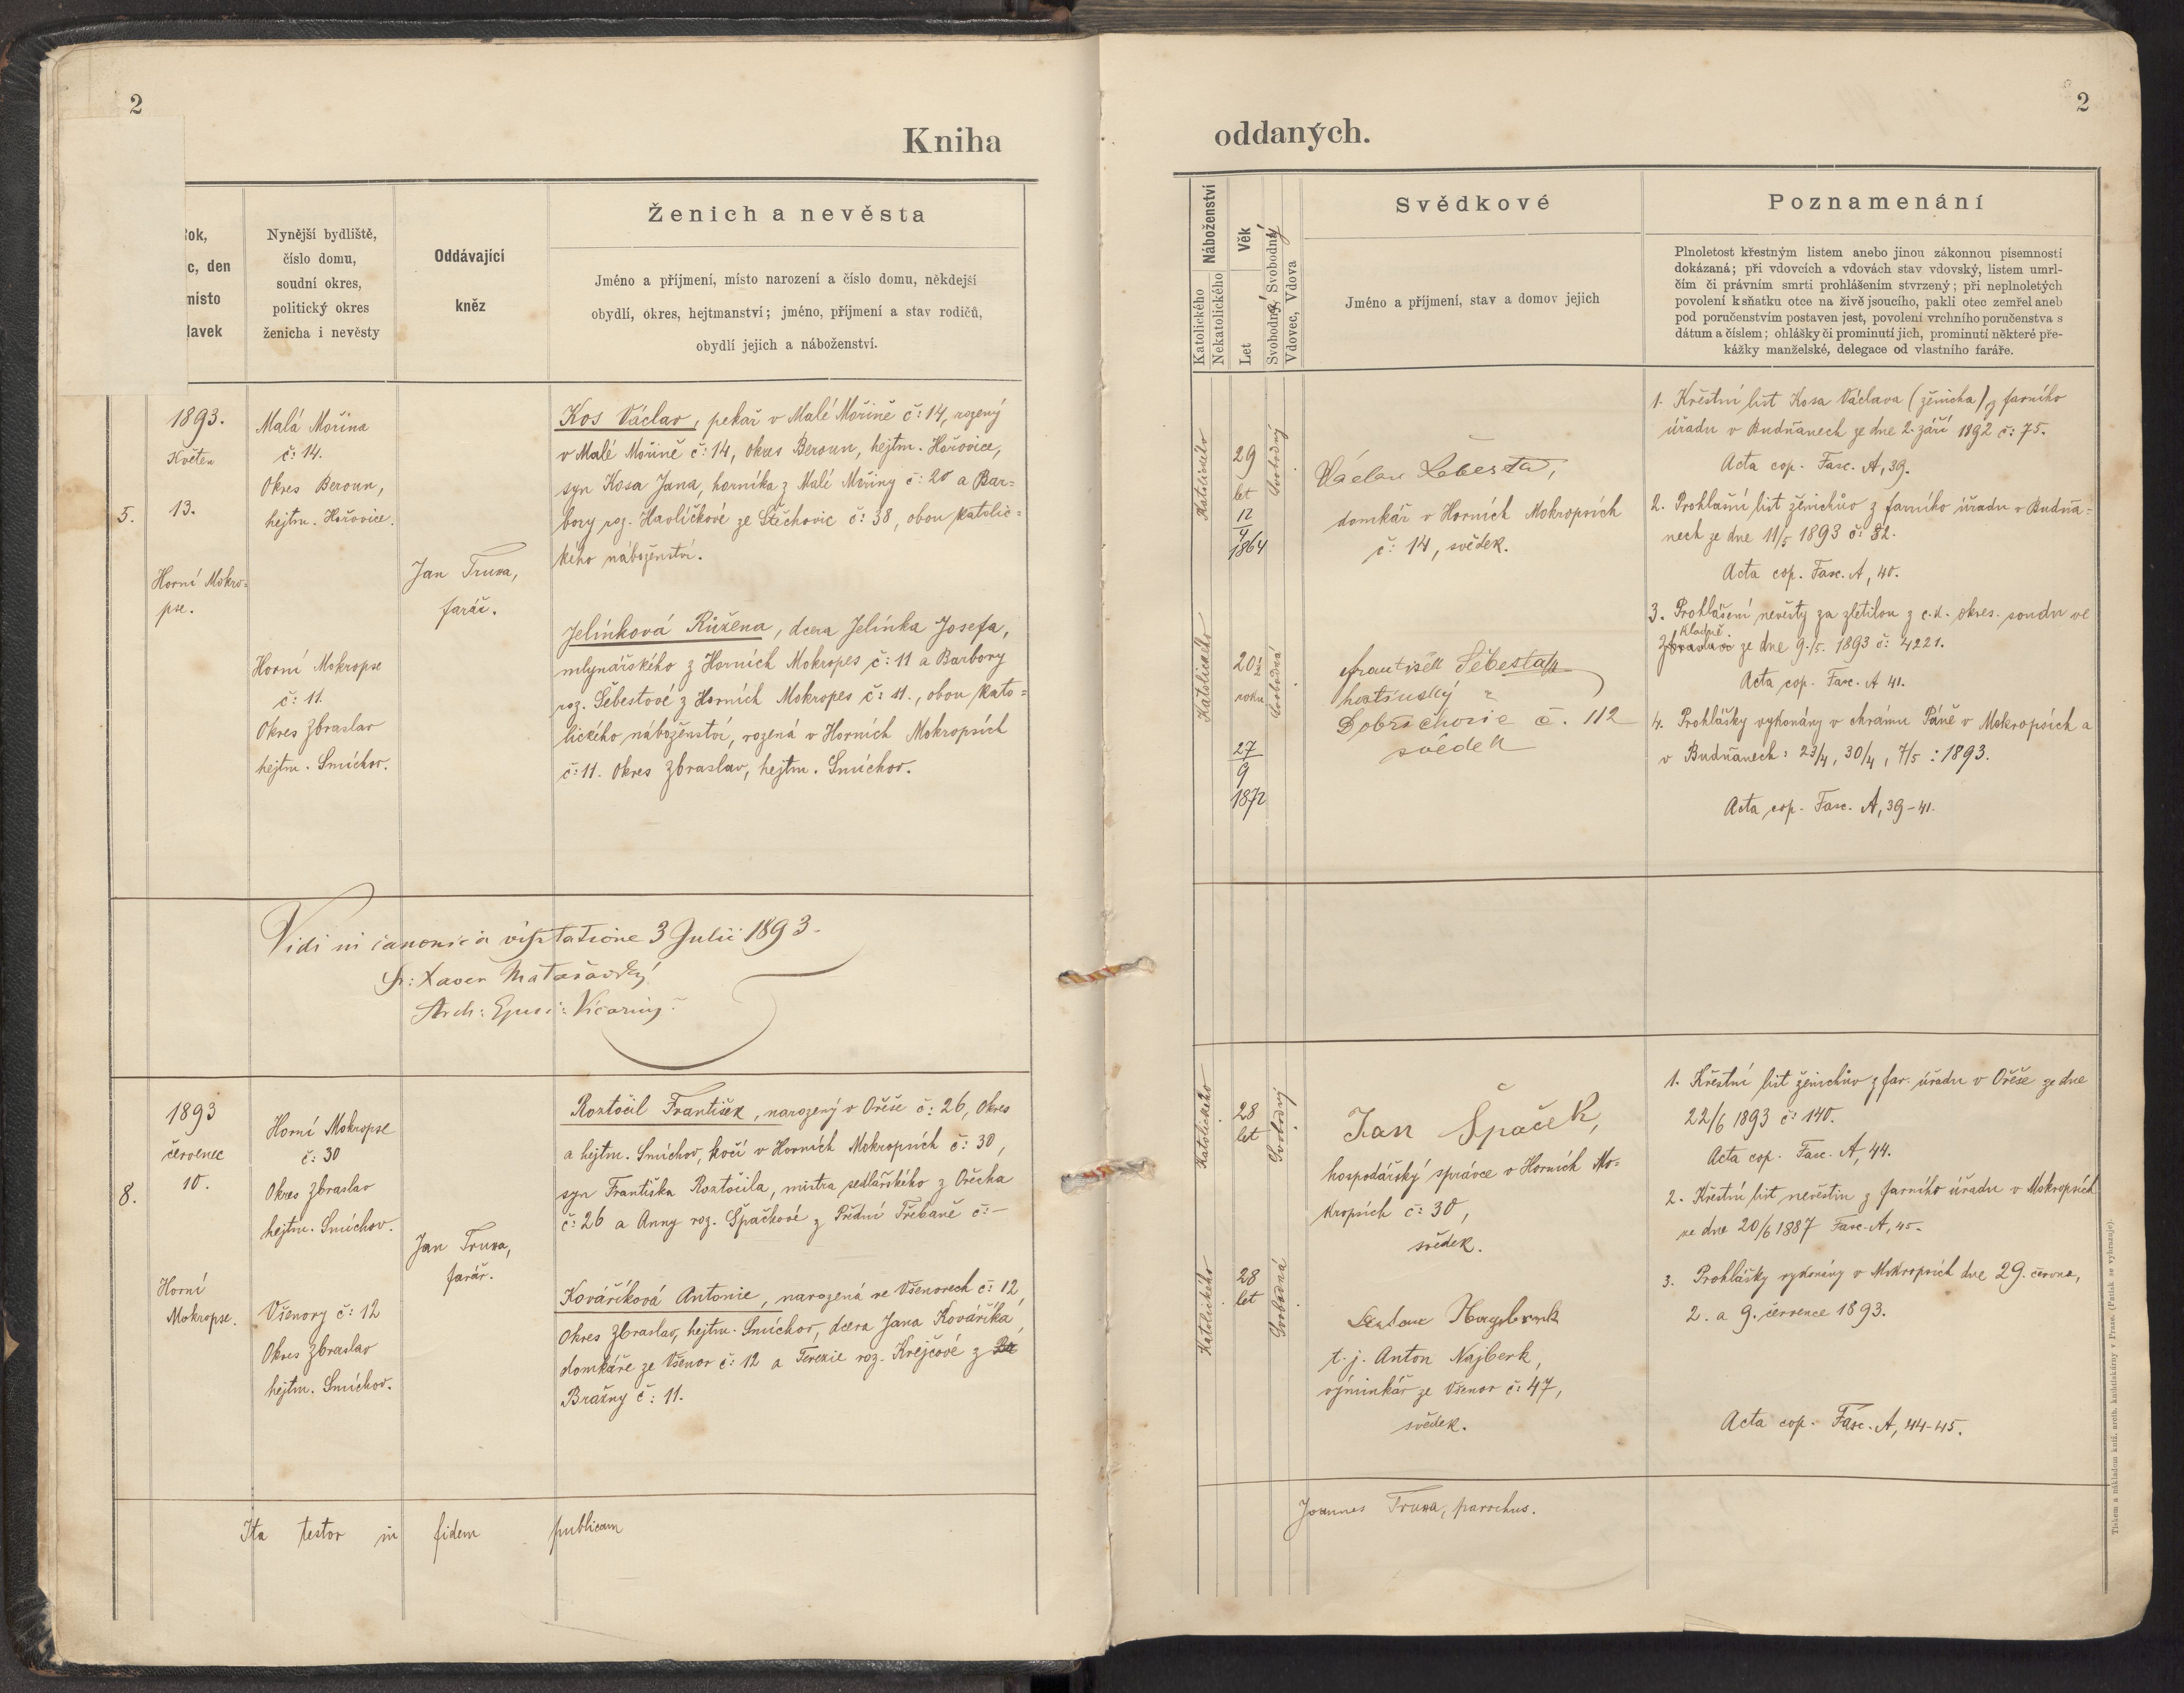 2
Kniha
ok,
c, den
místo
lavek
Nynější bydliště,
číslo domu,
soudní okres,
politický okres
ženicha i nevěsty
Oddávající
kněz
Ženich a nevěsta
Jméno a příjmení, místo narození a číslo domu, někdejší
obydlí, okres, hejtmanství; jméno, příjmení a stav rodičů,
obydlí jejich a náboženství.
5.
1893.
Květen
13.
Horní Mokro-
pse.
Malá Mořina
č: 14.
Okres Beroun,
hejtm. Hořovice.
Horní Mokropse
č: 11.
Okres Zbraslav
hejtm. Smíchov.
Jan Truxa,
farář.
Kos Václav, pekař v Malé Mořině č: 14, rozený
v Malé Mořině č: 14, okres Beroun, hejtm. Hořovice,
syn Kosa Jana, horníka z Malé Mořiny č: 20 a Bar=
bory roz. Havlíčkové ze Štěchovic č: 38, obou katolic=
kého náboženství.
Jelínková Růžena, dcera Jelínka Josefa,
mlynářského z Horních Mokropes č: 11 a Barbory
roz. Šebestové z Horních Mokropes č: 11., obou kato=
lického náboženství, rozená v Horních Mokropsích
č: 11. Okres Zbraslav, hejtm. Smíchov.
Vidi in canonica visitatione 3 Julii 1893.
Fr: Xaver
Arch: Eppi: Vicarius.
8.
1893
červenec
10.
Horní
Mokropse.
Horní Mokropse
č: 30
Okres Zbraslav
hejtm. Smíchov.
Všenory č: 12
Okres Zbraslav
hejtm. Smíchov.
Jan Truxa,
farář.
Roztočil František, narozený v Ořeše č: 26, Okres
a hejtm. Smíchov, kočí v Horních Mokropsích č: 30,
syn Františka Roztočila, mistra sedlářského z Ořecha
č: 26 a Anny roz. Špačkové z Přední Třebaně č: -
Kovaříková Antonie, narozená ve Všenorech č: 12,
Okres Zbraslav, hejtm. Smíchov, dcera Jana Kovaříka,
domkáře ze Všenor č: 12 a Terezie roz. Krejčové z
Brazny č: 11.
Ita testor in fidem publicam
2
oddaných.
Náboženství
Katolického
Nekatolického
Věk
Let
Svobodný, Svobodná
Vdovec, Vdova
Svědkové
Jméno a příjmení, stav a domov jejich
Poznamenání
Plnoletost křestným listem anebo jinou zákonnou písemností
dokázaná; při vdovcích a vdovách stav vdovský, listem umrl-
čím či právním smrti prohlášením stvrzený; při neplnoletých
povolení k sňatku otce na živě jsoucího, pakli otec zemřel aneb
pod poručenstvím postaven jest, povolení vrchního poručenstva s
dátum a číslem; ohlášky či prominutí jich, prominutí některé pře-
kážky manželské, delegace od vlastního faráře.
Katolického
29
let
12
4
1864
Svobodný
Václav Šebesta,
domkář v Horních Mokropsích
č: 14, svědek.
Katolického
20
roku
27
9
1872
Svobodná
František Šebesta
hostinský
Dobřichovic č. 112
svědek
1. Křestní list Kosa Václava (ženicha) z farního
úřadu v Budňanech ze dne 2. září 1892 č: 75.
Acta cop. Fasc. A, 39.
2. Prohlašní list ženichův z farního úřadu v Budňa=
nech ze dne 11/5 1893 č: 82.
Acta cop. Fasc. A, 40.
3. Prohlášení nevěsty za zletilou z c.k. okres. soudu ve
Kladně.
Zbraslavi ze dne 9./5. 1893 č: 4221.
Acta cop. Fasc. A 41.
4. Prohlášky vykonány v chrámu Páně v Mokropsích a
v Budňanech: 23/4, 30/4, 7/5 : 1893.
Acta cop. Fasc. A, 39-41.
Katolického
28
let
Svobodný
Jan Špaček,
hospodářský správce v Horních Mo-
kropsích č: 30,
svědek.
Katolického
28
let
Svobodná
t. j. Anton Najberk,
výminkář ze Všenor č: 47,
svědek.
1. Křestní list ženichův z far. úřadu v Ořeše ze dne
22/6 1893 č: 140.
Acta cop. Fasc. A, 44.
2. Křestní list nevěstin z farního úřadu v Mokropsích
ze dne 20/6 1887 Fasc. A, 45.
3. Prohlášky vykonány v Mokropsích dne 29. června,
2. a 9. července 1893.
Acta cop. Fasc. A, 44-45.
Joannes Truxa, parochus.
Tiskem a nákladem kníž. arcib. knihtiskárny v Praze. (Patisk se vyhrazuje).